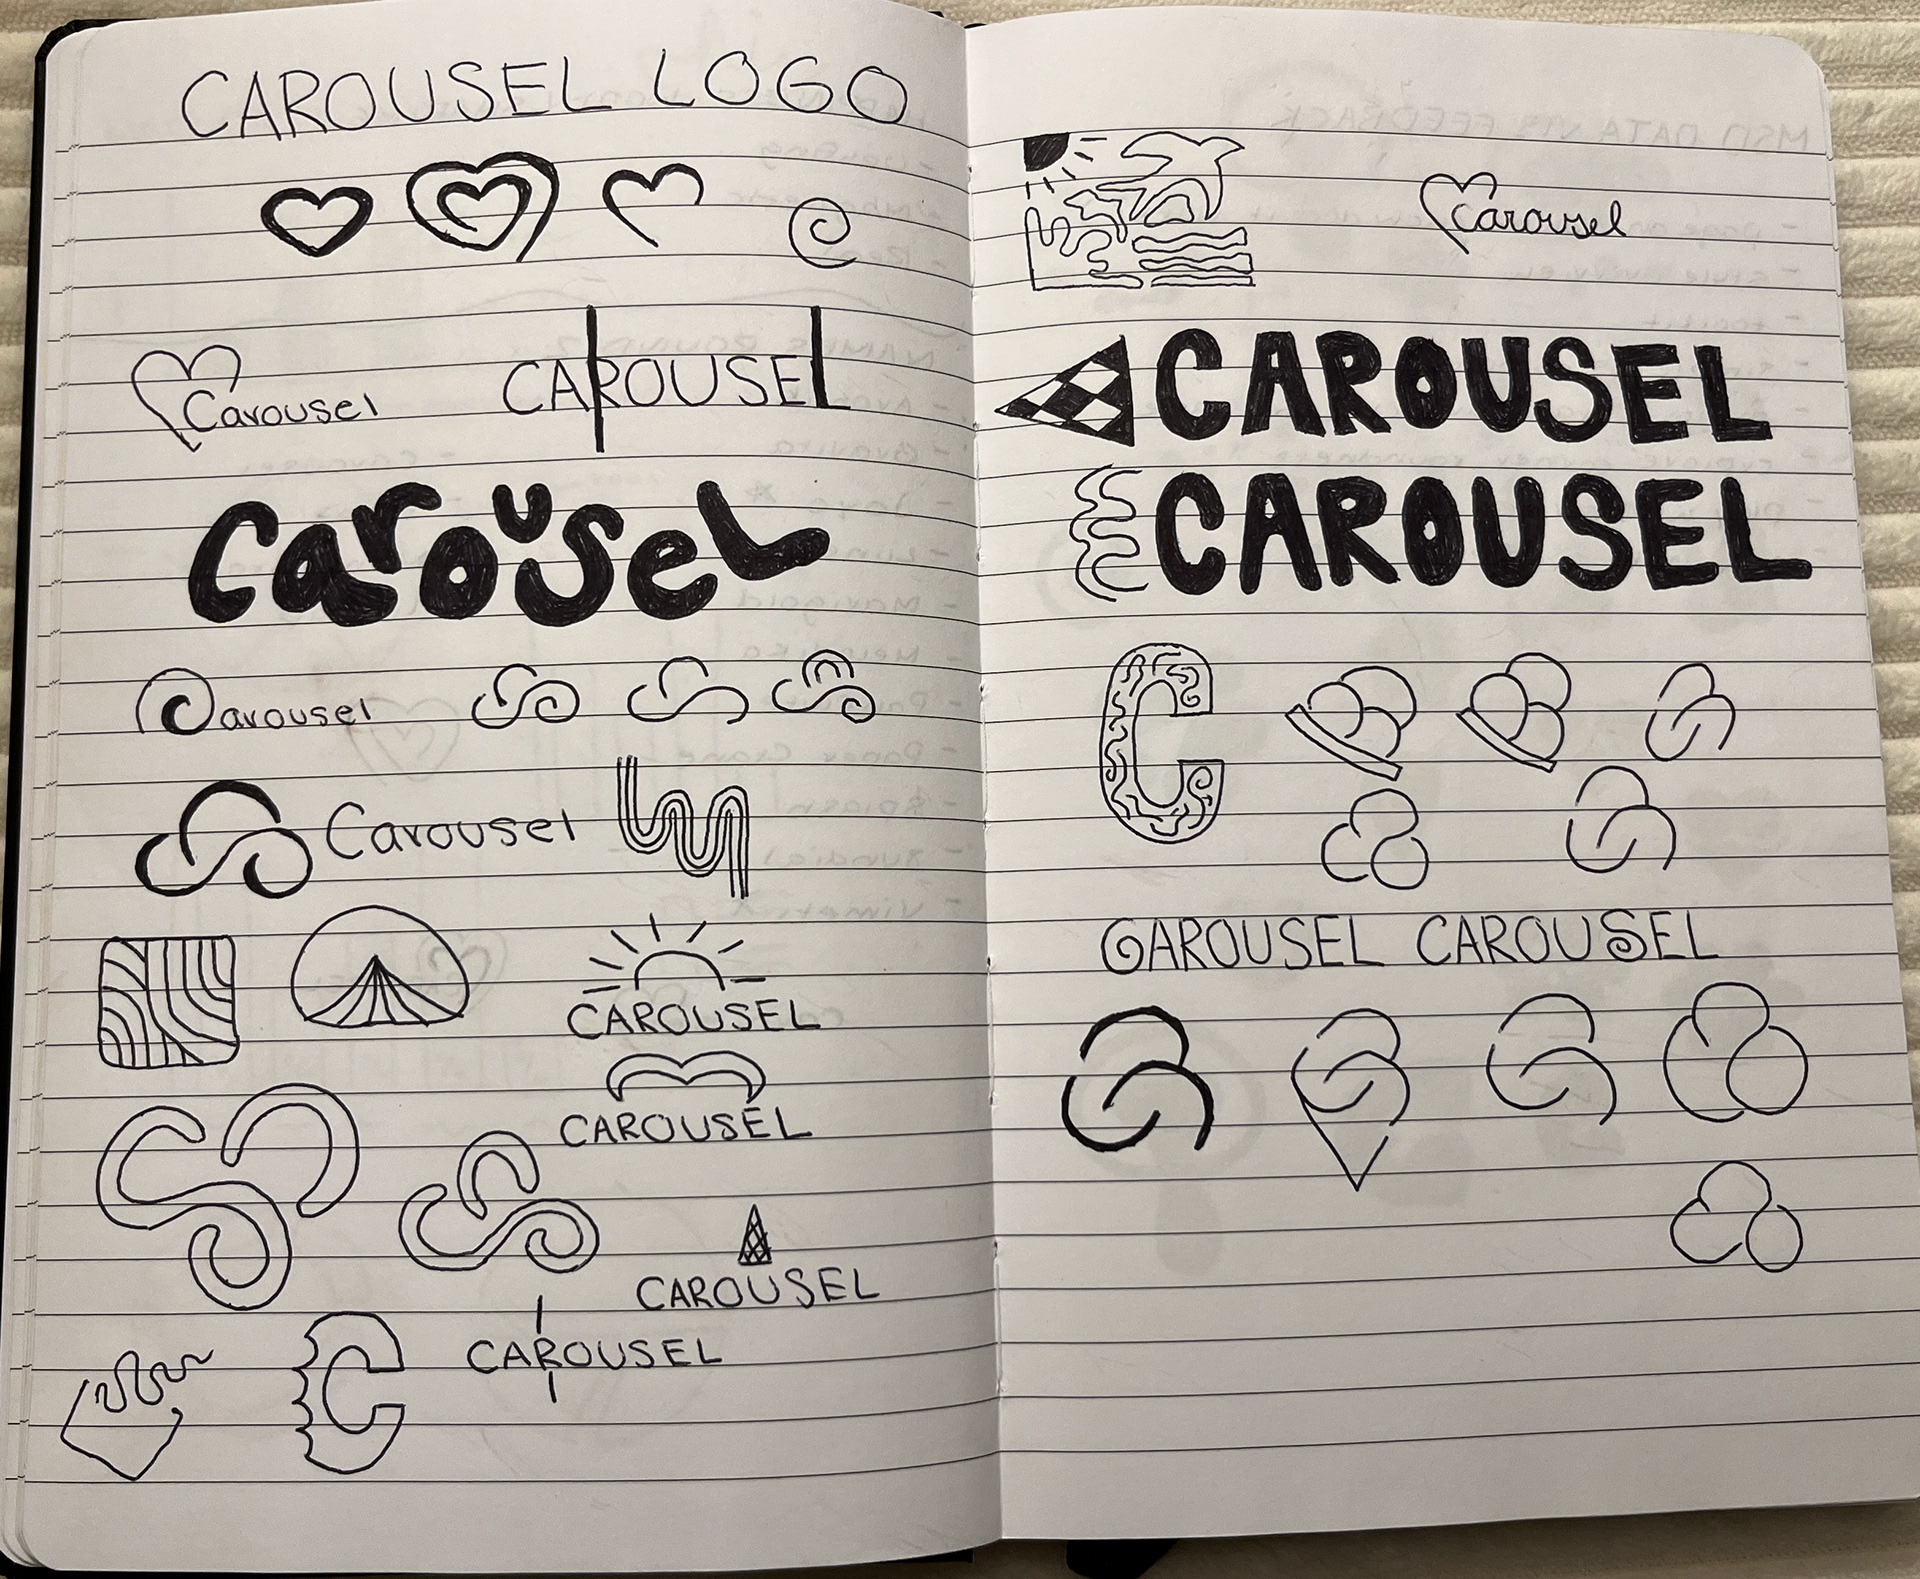 CAROUSEL LOGO
Carousel
CAROUSEL
Carousel
Carousel
Carousel
CAROUSEL
CAROUSEL
CAROUSEL
CAROUSEL
C
MSD DATA VIS FEEDBACK
Carousel
CAROUSEL
CAROUSEL
C
CAROUSEL CAROUSEL